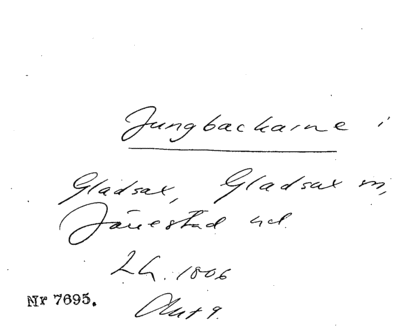 Jungbackarne i
Gladsax, Gladsax sn,
Järrestad hd.
Lh. 1806
Akt 9.
Nr 7695.